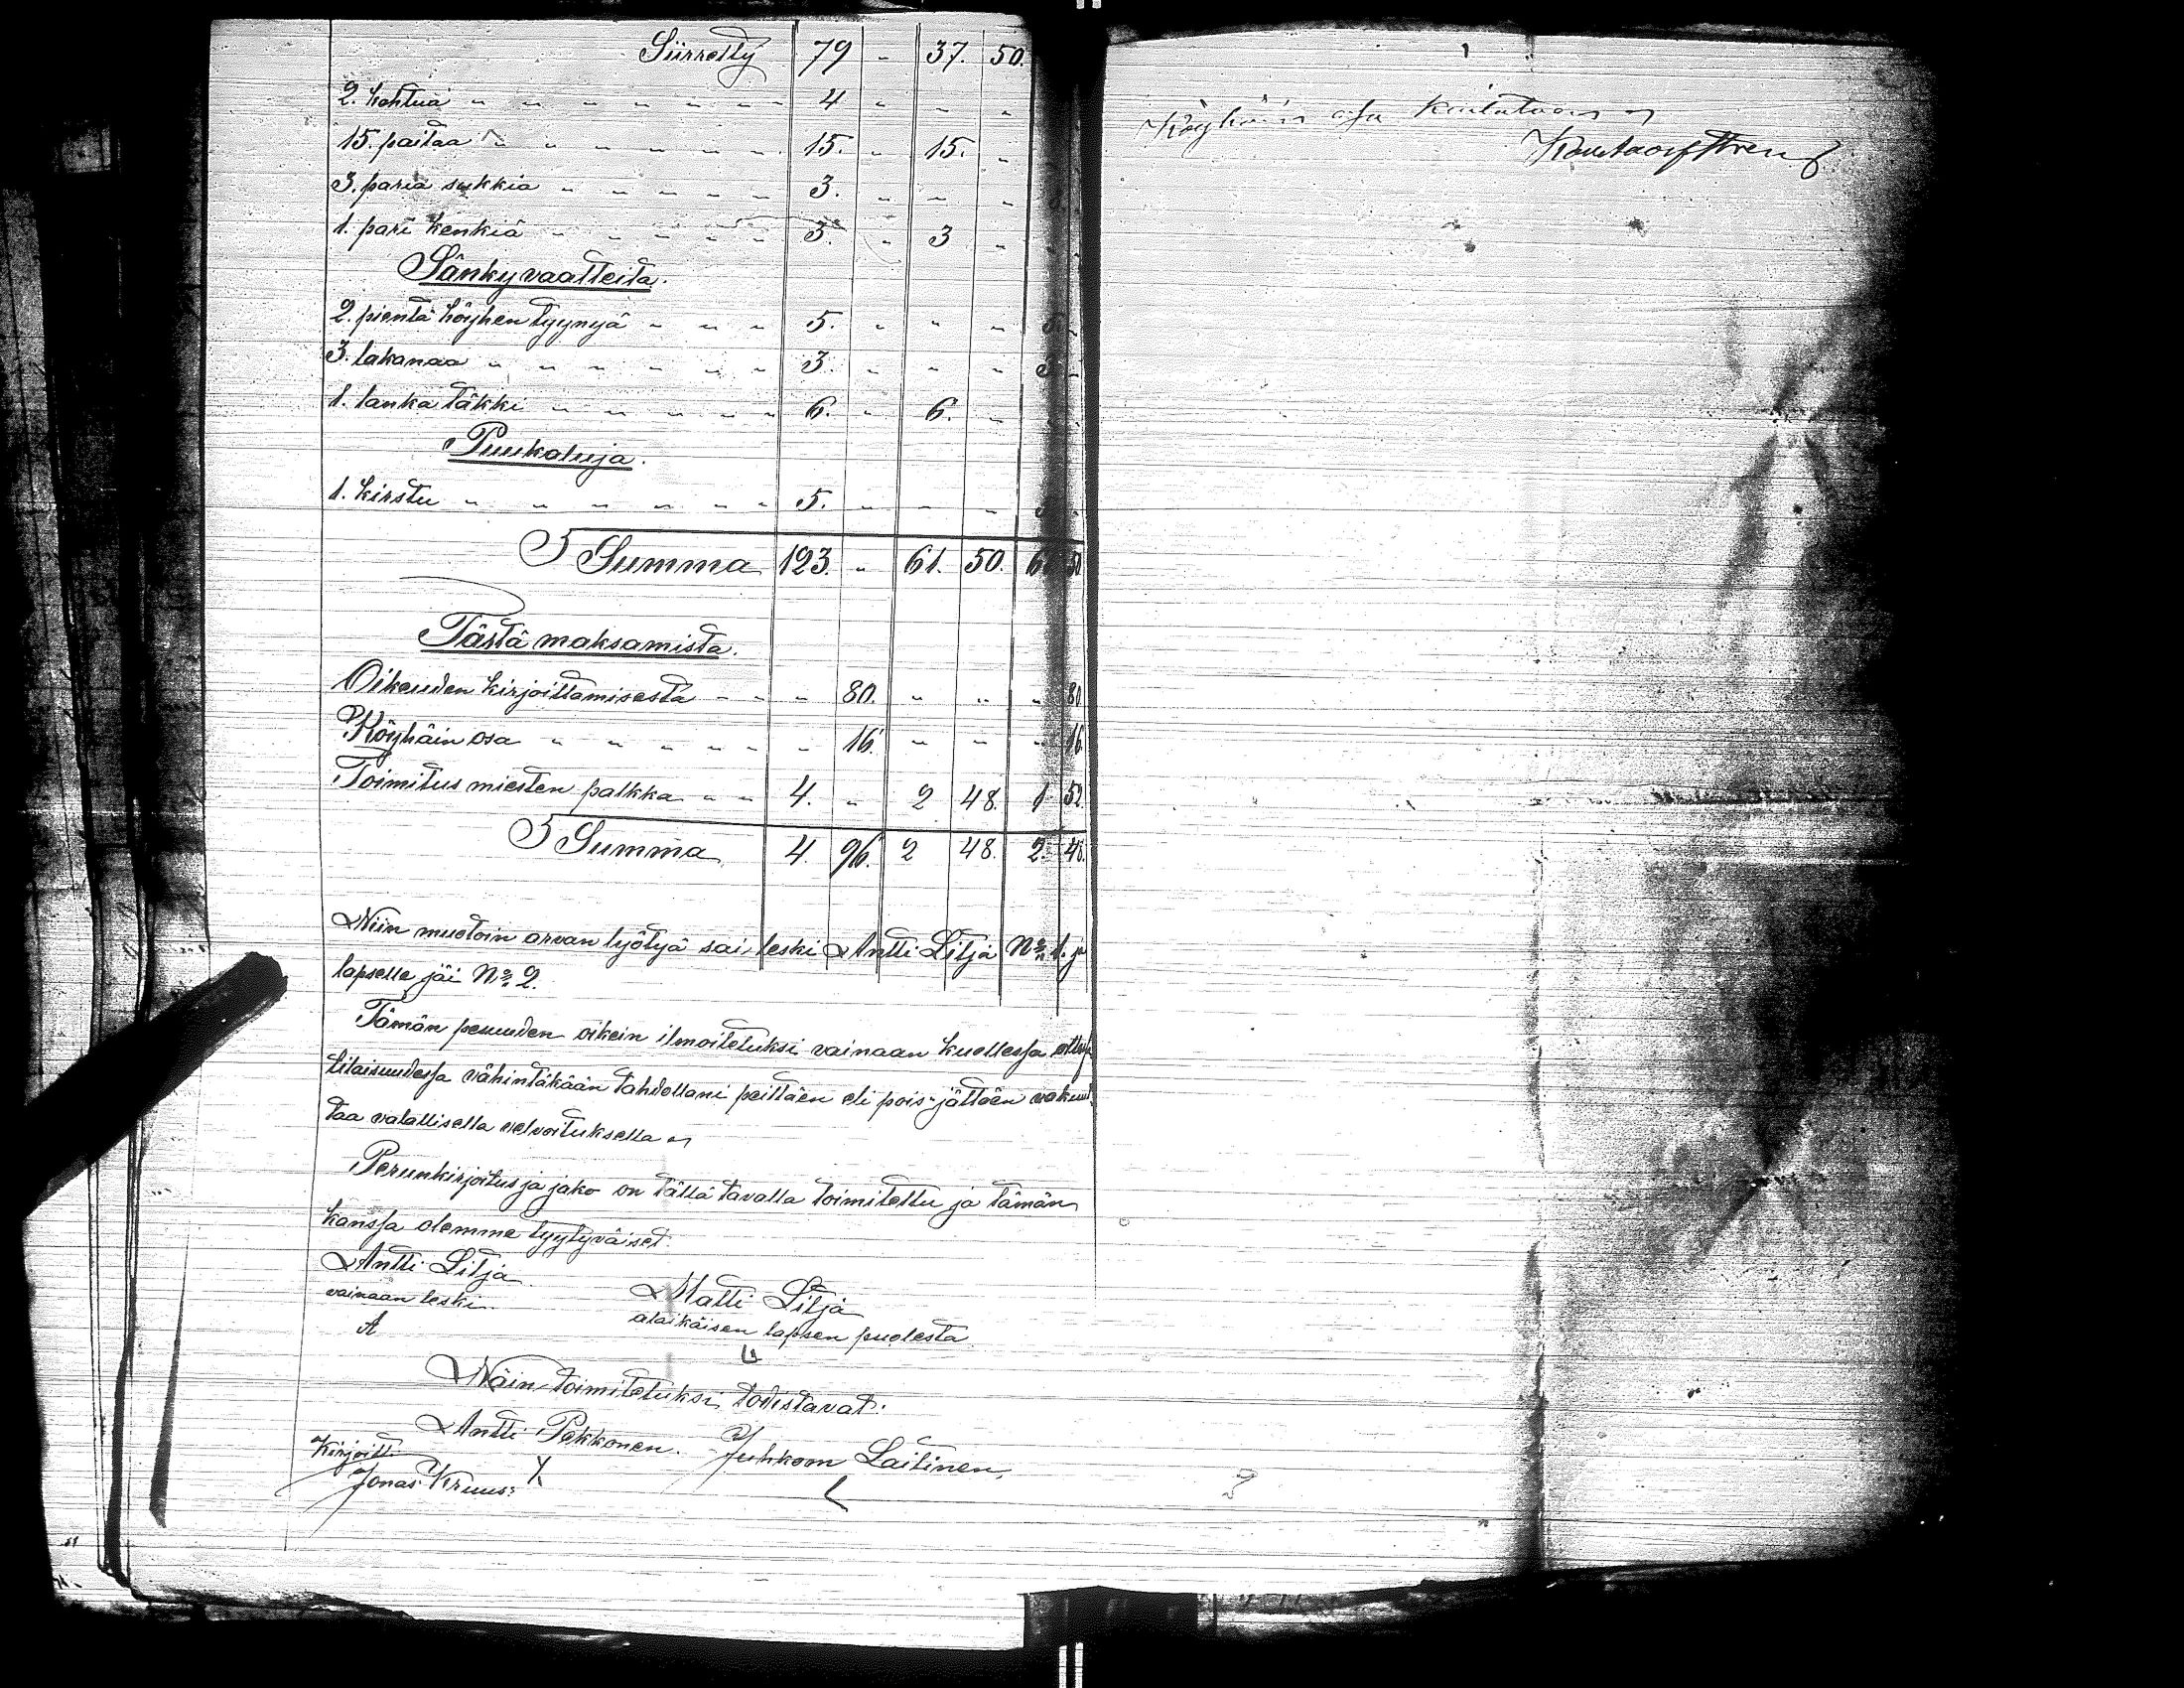 Siirretty 79 " 37. 50.
2. kohtua " " " " " " " " 4 " " "
15. paitaa " " " " " " " 15. " 15. "
3. paria sukkia " " " " " " 3. " " " 3.
1. pari kenkiä " " " " " " 3. " 3 " "
Sänkyvaatteita.
2. pientä höyhen tyynyä " " " 5. " " " 5. "
3. lakanaa " " " " " " " 3. " " " 3. "
1. lanka täkki " " " " " " 6. " 6. "
Puukaluja.
1. kirstu " " " " " " " " 5. " " " 5. "
Summa 123. " 61. 50. 61 50
Tästä maksamista.
Oikeuden kirjoittamisesta " " " 80. " " " 80
Köyhäin osa " " " " " " " 16. " " " 16.
Toimitus miesten palkka " " 4. " 2 48. 1 52.
Summa 4. 96. 2 48. 2. 48.
Niin muotoin arvan lyötyä sai leski Antti Lilja No 1. ja
lapselle jäi No 2.
Tämän pesuuden oikein ilmoitetuksi vainaan kuollessa
tilaisuudessa vähintäkään tahdollani peittäen eli pois-jättäen vakuut
taa valallisella velvoituksella
Perunkirjoitus ja jako on tällä tavalla toimitettu ja tämän
kanssa olemme tyytyväiset.
Antti Lilja Matti Lilja
vainaan leski. alaikäisen lapsen puolesta
A
Näin toimitetuksi todistavat:
Antti Pekkonen. Juhkom Laitinen.
Kirjoitti
Jonas Kruus:
Köyhäin osa